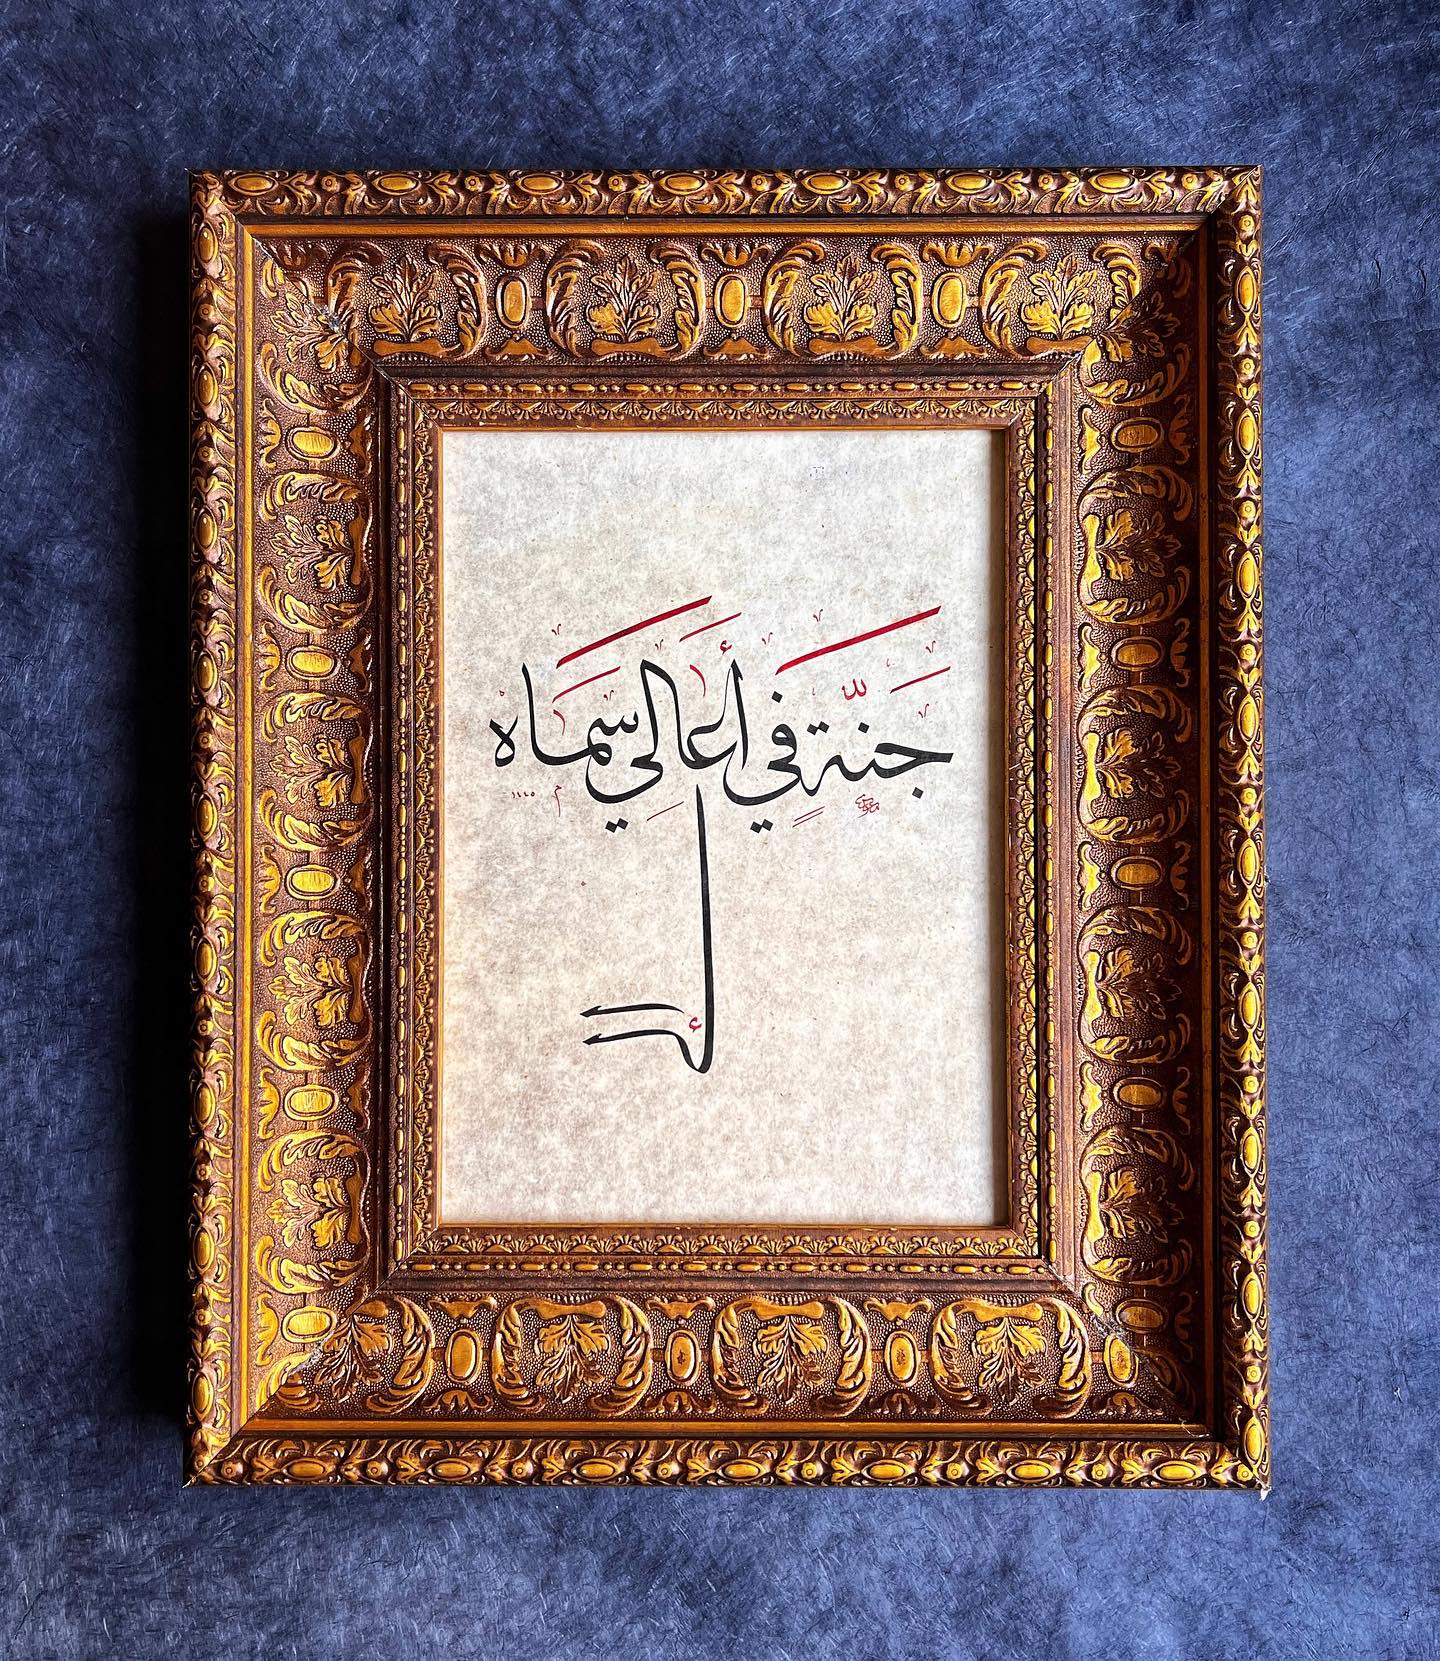 جنّة في أعالي سماه
١٤٤٥